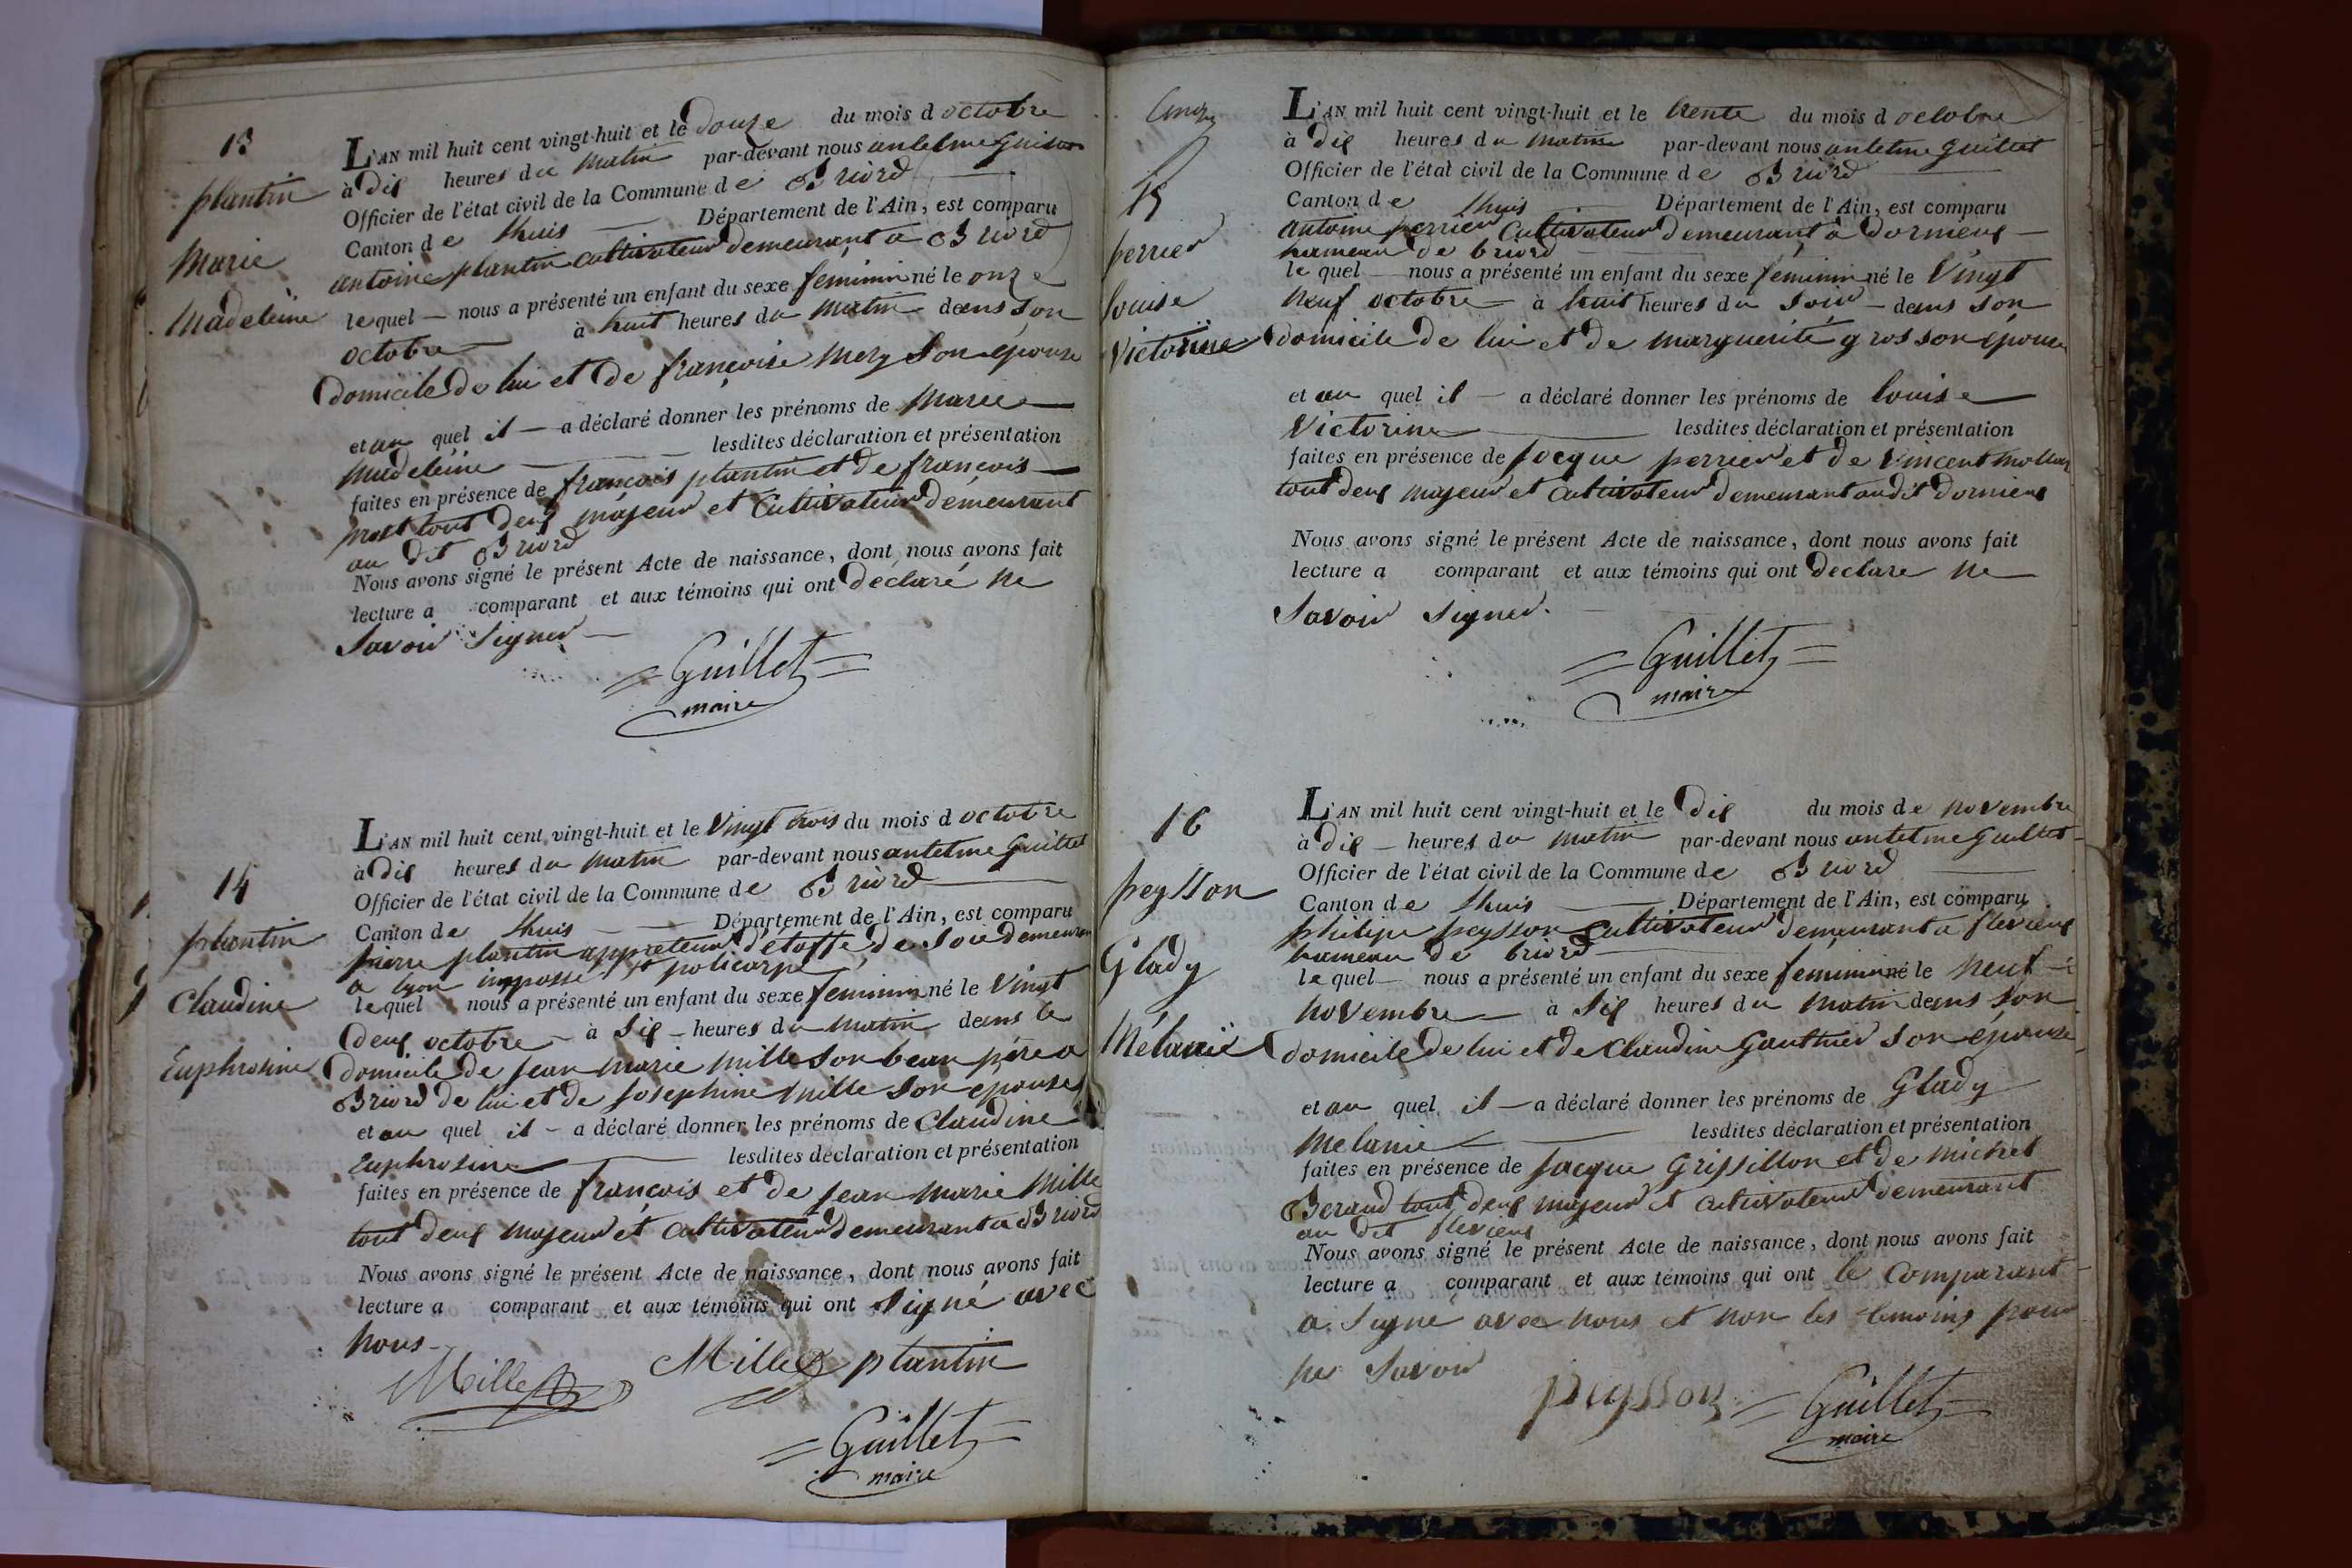 13
plantin
Marie
Madeleine
L'AN mil huit cent vingt-huit et le douze du mois d octobre
à dix heures du matin par-devant nous antelme
Officier de l'état civil de la Commune de Briord
Canton de Lhuis Département de l'Ain, est comparu
antoine plantin cultivateur demeurant a Briord
lequel nous a présenté un enfant du sexe feminin né le onze
octobre à huit heures du matin dans son
domicile de lui et de françoise Mery son epouse
et au quel il a déclaré donner les prénoms de Marie
Madeleine lesdites déclaration et présentation
faites en présence de françois plantin et de françois
tout deux majeur et cultivateur demeurant
au dit Briord
Nous avons signé le présent Acte de naissance, dont nous avons fait
lecture a comparant et aux témoins qui ont déclaré ne
savoir signer
Guillet
maire
14
plantin
Claudine
Euphrosine
L'AN mil huit cent vingt-huit et le vingt trois du mois d octobre
à dix heures du matin par-devant nous antelme Guillet
Officier de l'état civil de la Commune de Briord
Canton de Lhuis Département de l'Ain, est comparu
pierre plantin appreteur d'étoffe de soie demeurant
a lyon impasse st policarpe
lequel nous a présenté un enfant du sexe feminin né le vingt
deux octobre à six heures du matin dans le
domicile de jean marie mille son beau père a
Briord de lui et de josephine mille son epouse
et au quel il a déclaré donner les prénoms de Claudine
Euphrosine lesdites déclaration et présentation
faites en présence de françois et de jean marie Mille
tout deux majeur et cultivateur demeurant a Briord
Nous avons signé le présent Acte de naissance, dont nous avons fait
lecture a comparant et aux témoins qui ont signé avec
nous
Mille Mille plantin
Guillet
maire
15
perrier
louise
Victorine
L'AN mil huit cent vingt-huit et le trente du mois d octobre
à dix heures du matin par-devant nous antelme Guillet
Officier de l'état civil de la Commune de Briord
Canton de Lhuis Département de l'Ain, est comparu
antoine perrier cultivateur demeurant à dornieux
hameau de briord
lequel nous a présenté un enfant du sexe feminin né le vingt
neuf octobre à huit heures du soir dans son
domicile de lui et de marguerite gros son épouse
et au quel il a déclaré donner les prénoms de louise
Victorine lesdites déclaration et présentation
faites en présence de jocque perrier et de vincent
tout deux majeur et cultivateur demeurant audit dornieux
Nous avons signé le présent Acte de naissance, dont nous avons fait
lecture a comparant et aux témoins qui ont declare ne
savoir signer.
Guillet
maire
16
peysson
Glady
Mélanie
L'AN mil huit cent vingt-huit et le dix du mois de novembre
à dix heures du matin par-devant nous antelme Guillet
Officier de l'état civil de la Commune de Briord
Canton de Lhuis Département de l'Ain, est comparu
philipe peysson cultivateur demeurant a flevieux
hameau de briord
lequel nous a présenté un enfant du sexe feminin né le neuf
novembre à six heures du matin dans son
domicile de lui et de Claudine Gauthier son épouse
et au quel il a déclaré donner les prénoms de Glady
Melanie lesdites déclaration et présentation
faites en présence de jacque Grissillon et de michel
Beraud tout deux majeur et cultivateur demeurant
au dit flevieux
Nous avons signé le présent Acte de naissance, dont nous avons fait
lecture a comparant et aux témoins qui ont le comparant
a signé avec nous et non les temoins pour
ne savoir
peysson Guillet
maire